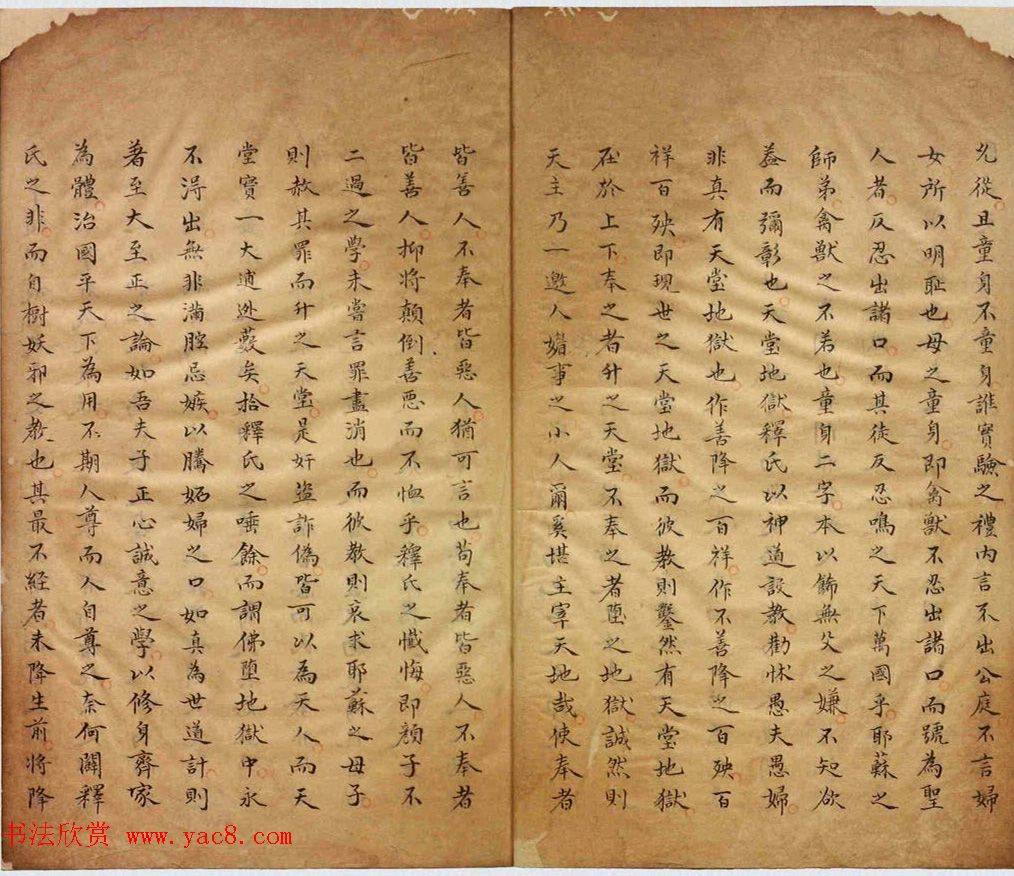 允從且童身不童身誰實驗之禮內言不出公庭不言婦
女所以明恥也母之童身即禽獸不忍出諸口而號為聖
人者反忍出諸口而其徒反忍鳴之天下萬國乎耶蘇之
師弟禽獸之不若也童身二字本以飾無父之嫌不知欲
葢而彌彰也天堂地獄釋氏以神道設教勸怵愚夫愚婦
非真有天堂地獄也作善降之百祥作不善降之百殃百
祥百殃即現世之天堂地獄而彼教則鑿然有天堂地獄
在於上下奉之者升之天堂不奉之者墮之地獄誠然則
天主乃一邀人媚事之小人爾奚堪主宰天地哉使奉者
皆善人不奉者皆惡人猶可言也苟奉者皆惡人不奉者
皆善人抑將顛倒善惡而不恤乎釋氏之懺悔即顏子不
二過之學未嘗言罪盡消也而彼教則哀求耶蘇之母子
則赦其罪而升之天堂是奸盜詐偽皆可以為天人而天
堂實一大逋逃藪矣拾釋氏之唾餘而謂佛墮地獄中永
不淂出無非滿腔忌嫉以騰妬婦之口如真為世道計則
著至大至正之論如吾夫子正心誠意之學以修身齊家
為體治國平天下為用不期人尊而人自尊之奈何闢釋
氏之非而自樹妖邪之教也其最不經者未降生前將降
书法欣赏 www.yac8.com